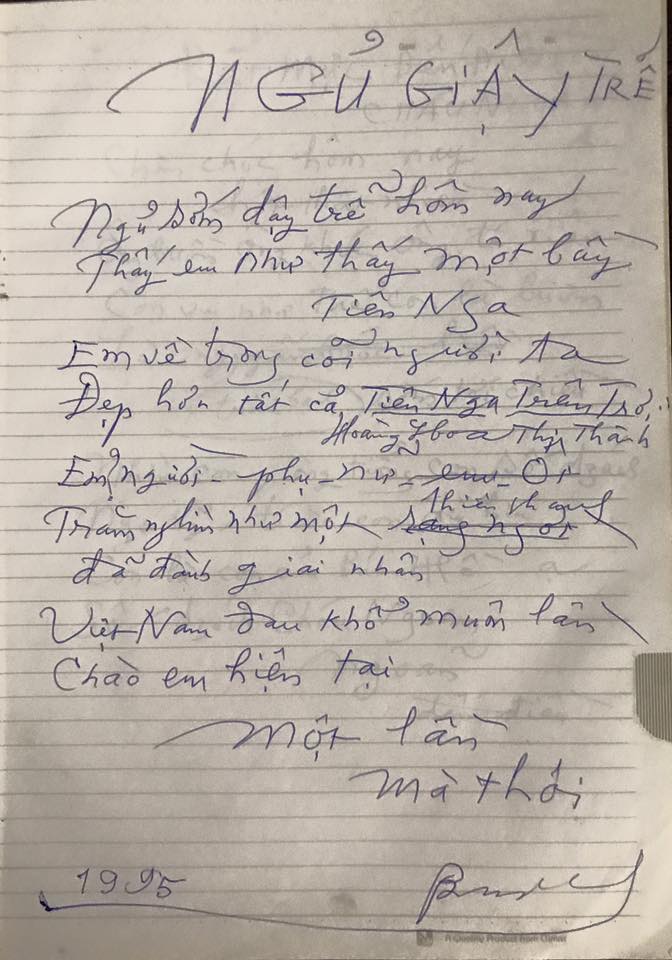 NGỦ GIẬY TRỄ
Ngủ sớm dậy trễ hôm nay
Thấy em như thấy một bầy
Tiên Nga
Em về trong cõi người ta
Đẹp hơn tất cả Tiên Nga Trên Trời
Hoàng Hoa Thịnh Thành
Em người phụ nữ em Ơi
thiên thanh
Trăm nghìn như một sáng ngời
đã đành giai nhân
Việt Nam đau khổ muôn lần
Chào em hiện tại
Một lần
Mà thôi
1995
A Quality Product from